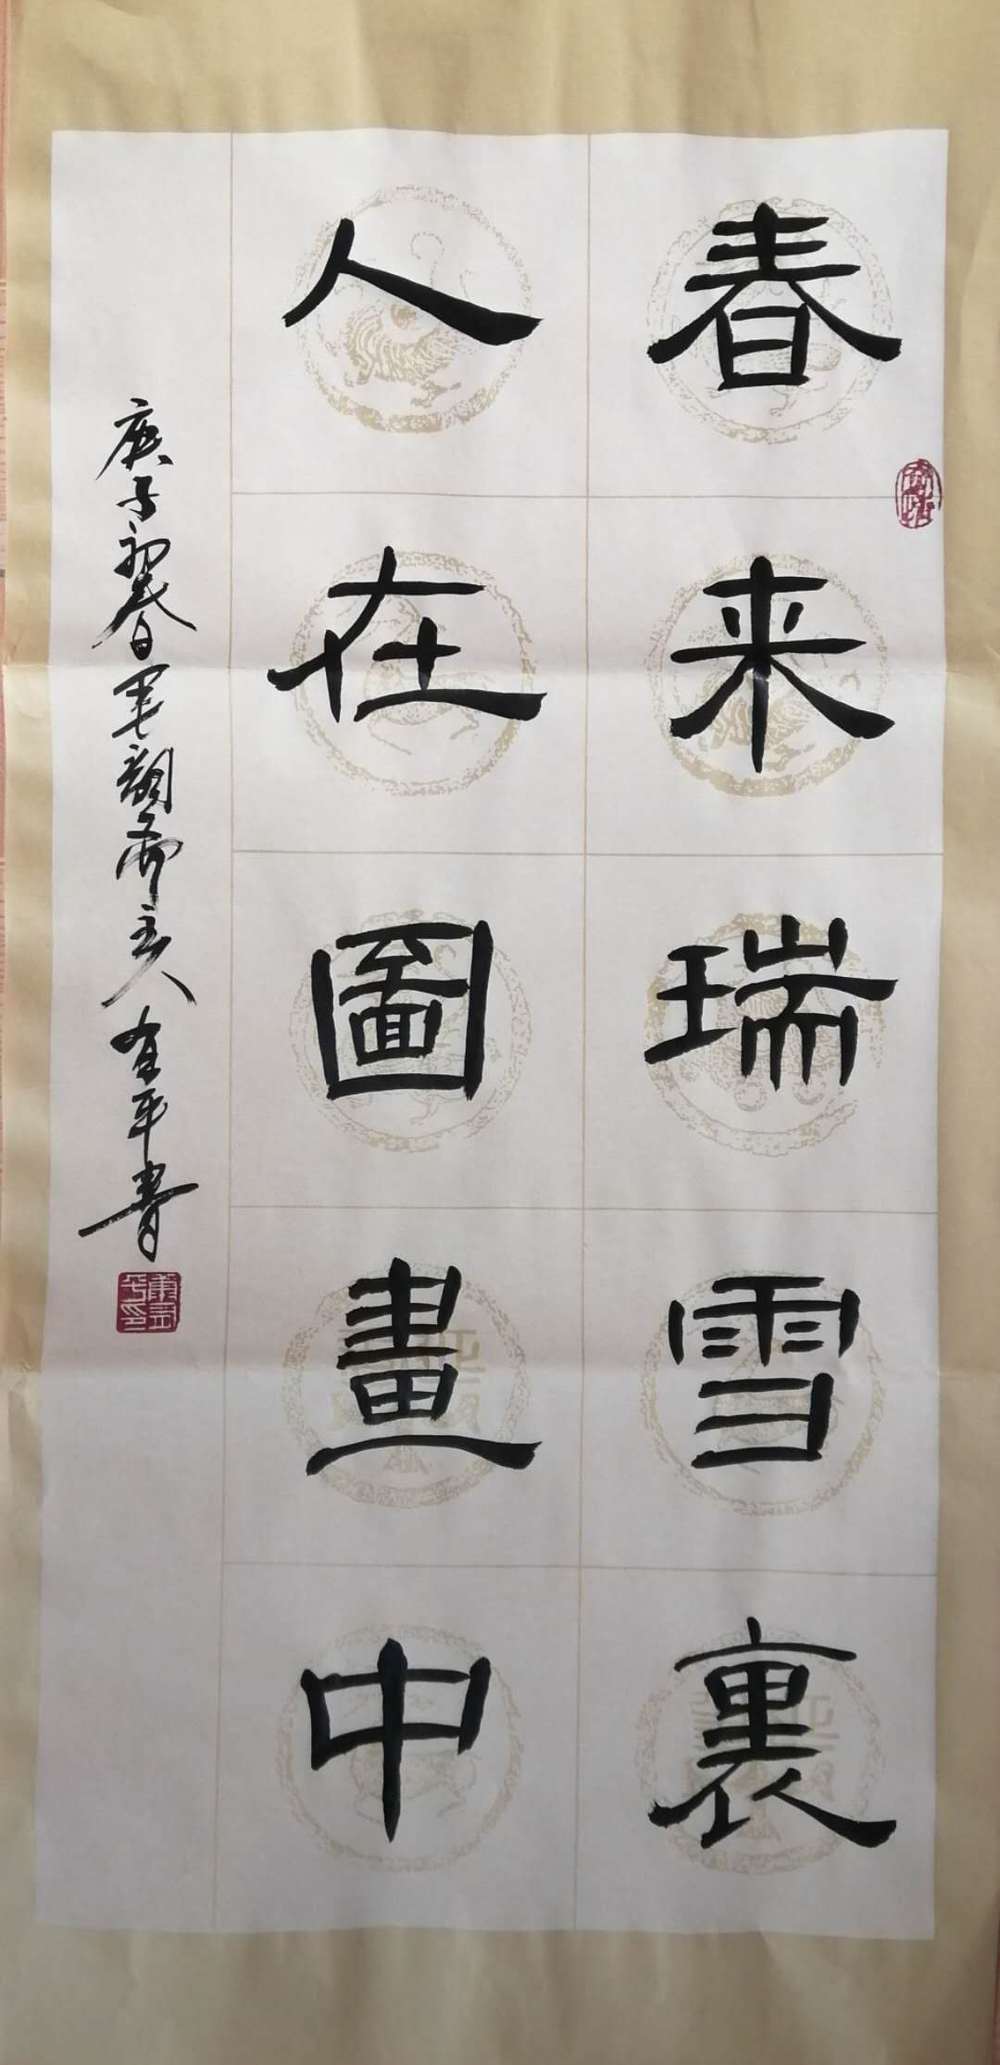 春来瑞雪裏
人在圖畫中
庚子初春墨韻齋主人有平書